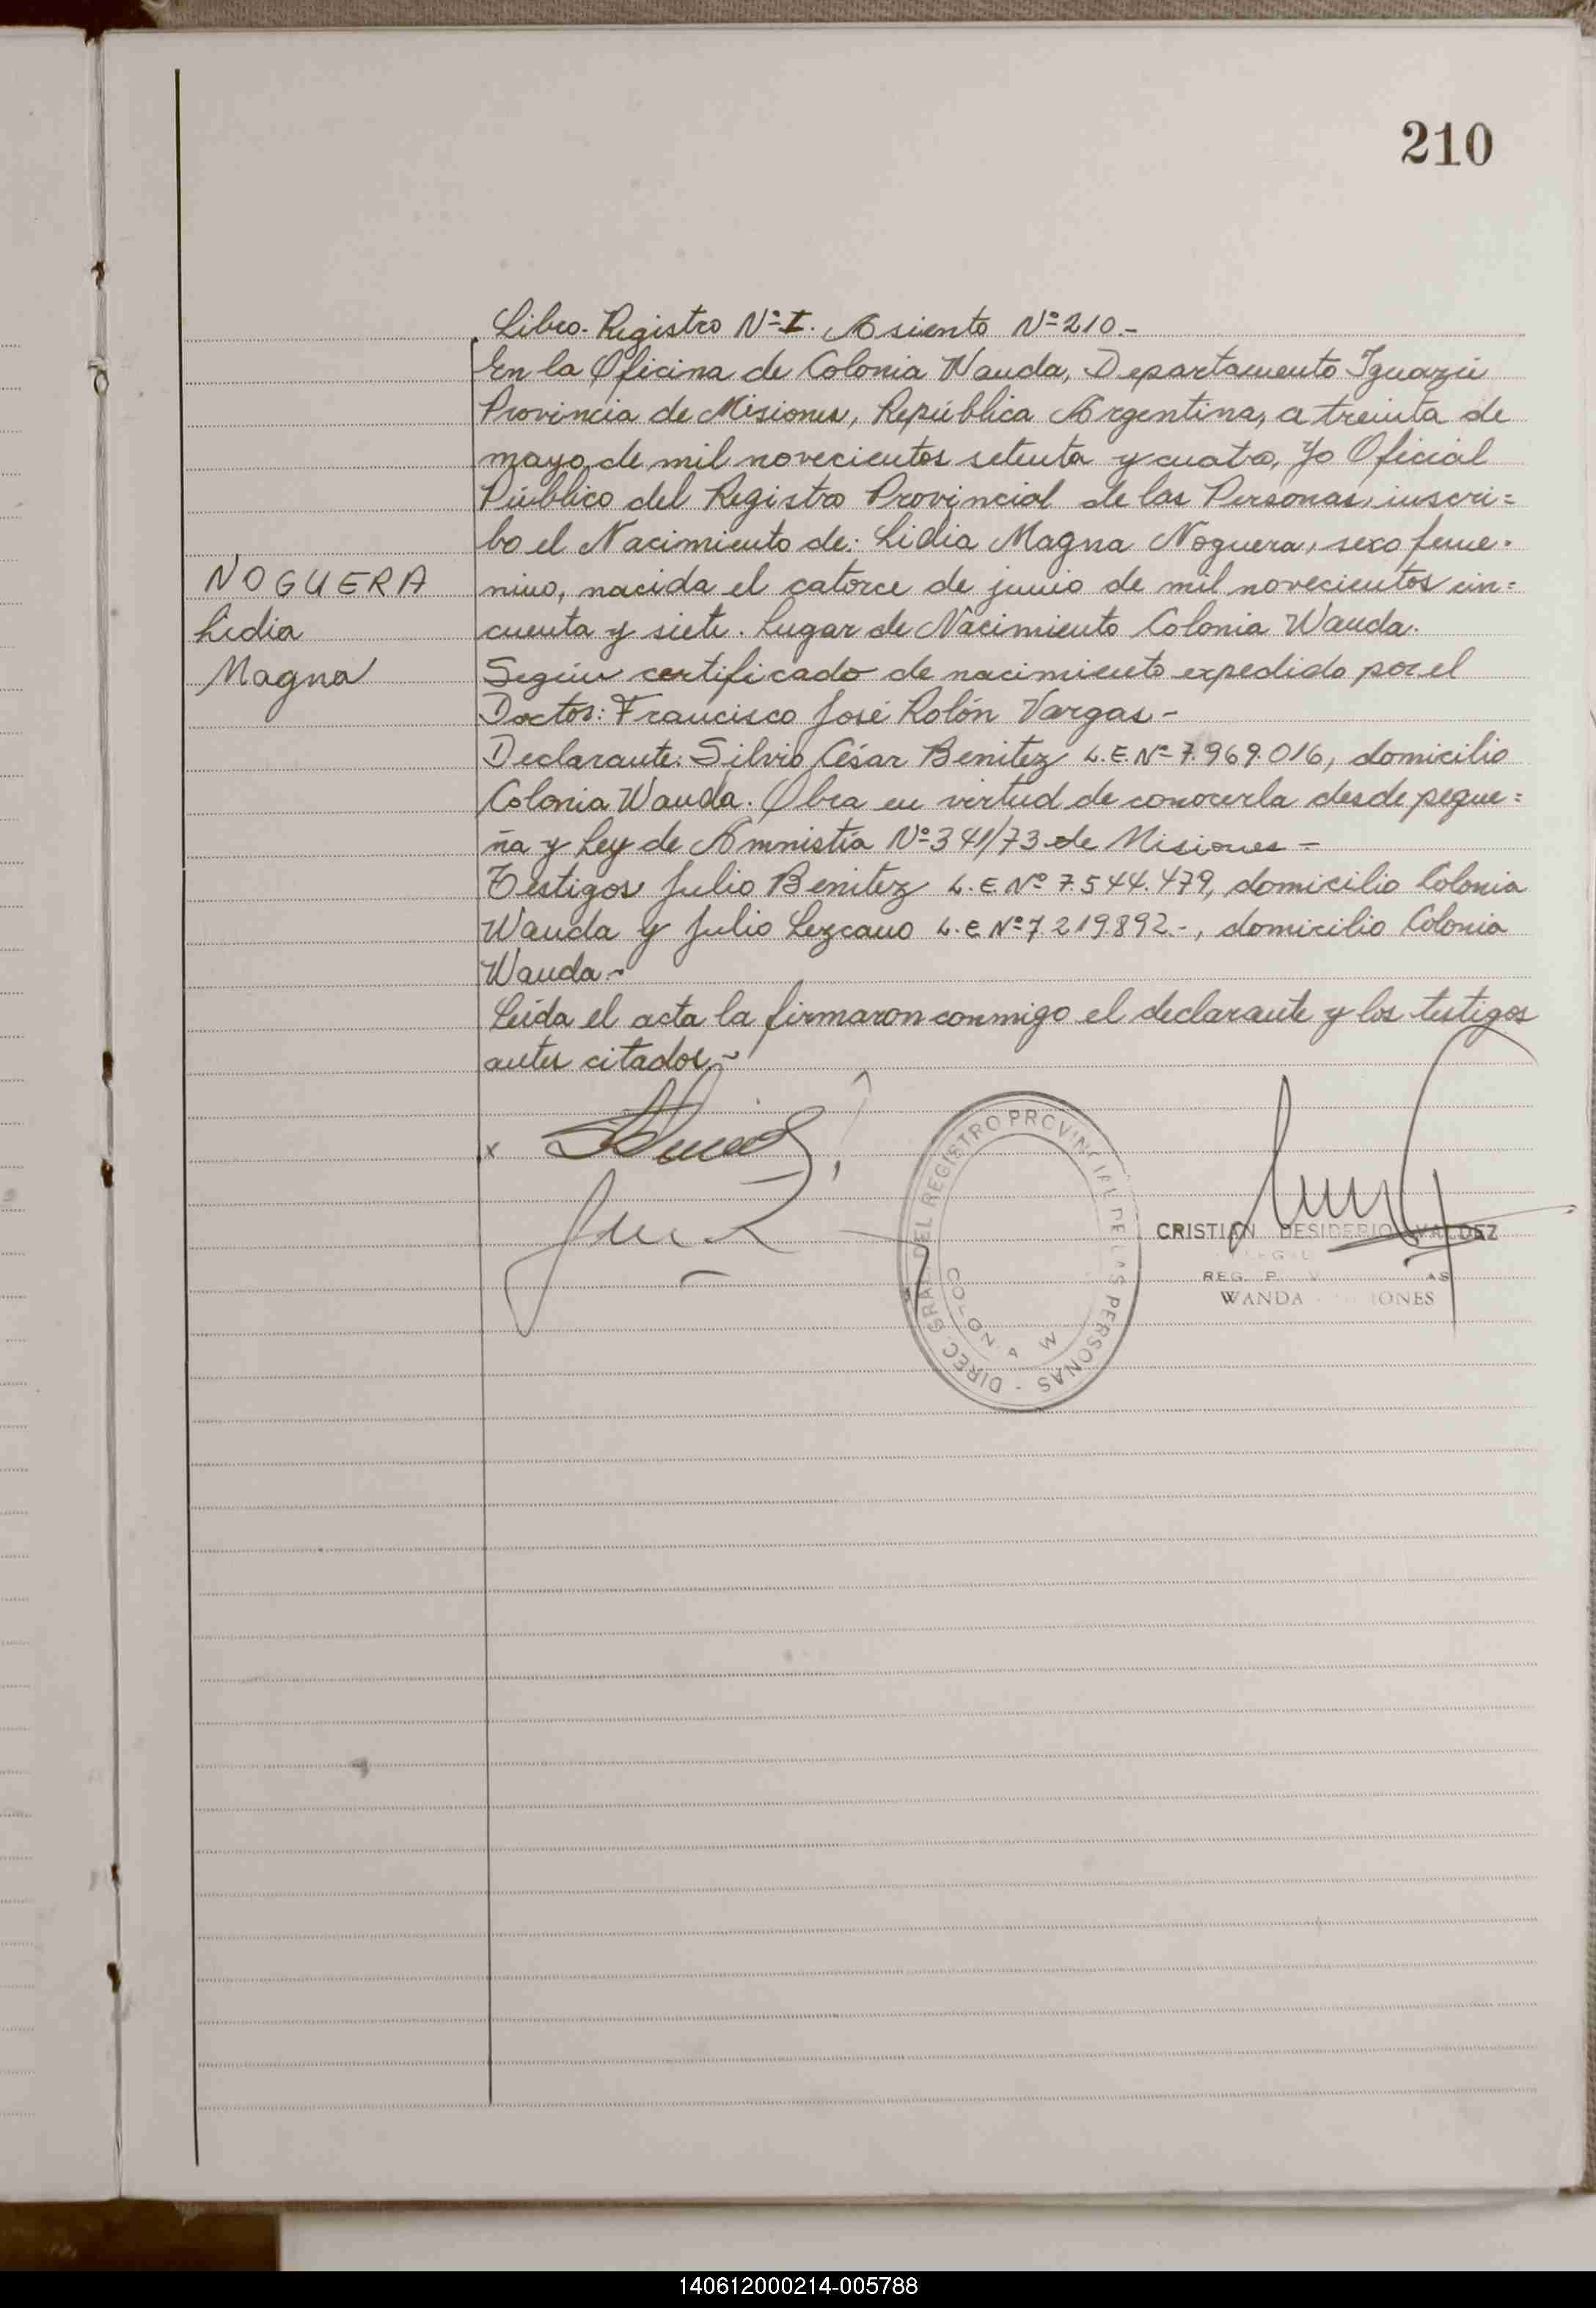 210
Libro. Registro Nº I. Asiento Nº 210.-
En la Oficina de Colonia Wanda, Departamento Iguazú
Provincia de Misiones, República Argentina, a treinta de
mayo de mil novecientos setenta y cuatro, Yo Oficial
Público del Registro Provincial de las Personas, inscri=
bo el Nacimiento de: Lidia Magna Noguera, sexo feme.
NOGUERA nino, nacida el catorce de junio de mil novecientos cin=
Lidia cuenta y siete. Lugar de Nacimiento Colonia Wanda.
Magna Según certificado de nacimiento expedido por el
Doctor: Francisco José Rolón Vargas-
Declarante: Silvio César Benitez L.E. Nº 7.969.016, domicilio
Colonia Wanda. Obra en virtud de conocerla desde peque=
ña y Ley de Amnistía Nº 341/73 de Misiones-
Testigos Julio Benitez L.E. Nº 7.544.479, domicilio Colonia
Wanda y Julio Lezcano L.E Nº 7219892.-, domicilio Colonia
Wanda.-
Leída el acta la firmaron conmigo el declarante y los testigos
antes citados.-
x
DIREC. GRAL. DEL REGISTRO PROVINCIAL DE LAS PERSONAS -
CRISTIAN DESIDERIO VALDEZ
REG. P
WANDA
140612000214-005788